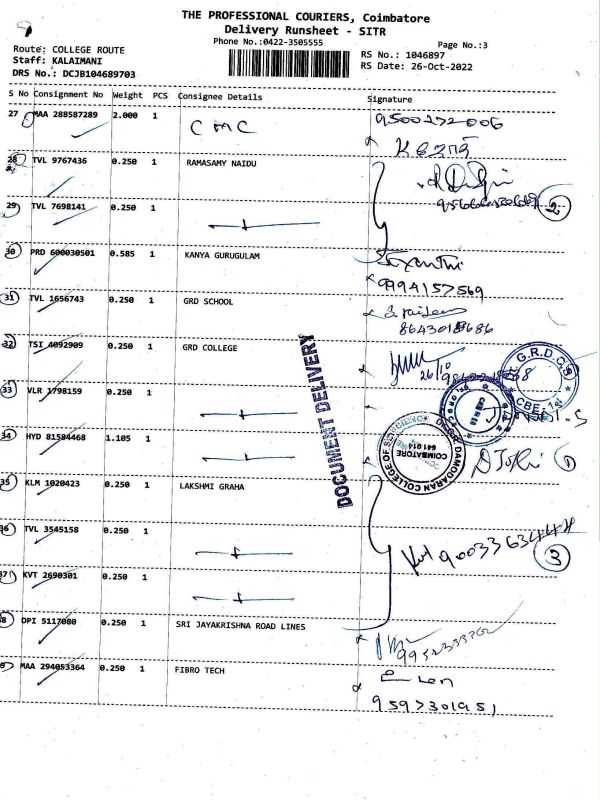 THE PROFESSIONAL COURIERS, Coimbatore
Delivery Runsheet - SITR
Phone No.:0422-3505555
Page No.:3
Route: COLLEGE ROUTE
Staff: KALAIMANI
DRS No.: DCJB104689703
RS No.: 1046897
RS Date: 26-Oct-2022
S No Consignment No Weight PCS Consignee Details Signature
27 MAA 288587289 2.000 1 CMC 9500272006
28 TVL 9767436 0.250 1 RAMASAMY NAIDU
29 TVL 7698141 0.250 1
2
30 PRD 600030501 0.585 1 KANYA GURUGULAM
9994157569
31 TVL 1656743 0.250 1 GRD SCHOOL
32 TSI 4092909 0.250 1 GRD COLLEGE
26/10
G.R.D.C.S
CBE-14
33 VLR 1798159 0.250 1
34 HYD 81584468 1.105 1
DOCUMENT DELIVERY
DAMODARAN COLLEGE OF SCIENCE
COIMBATORE
641 014
35 KLM 1020423 0.250 1 LAKSHMI GRAHA
36 TVL 3545158 0.250 1
3
37 KVT 2690301 0.250 1
8 DPI 5117080 0.250 1 SRI JAYAKRISHNA ROAD LINES
9 MAA 294053364 0.250 1 FIBRO TECH
9597301951